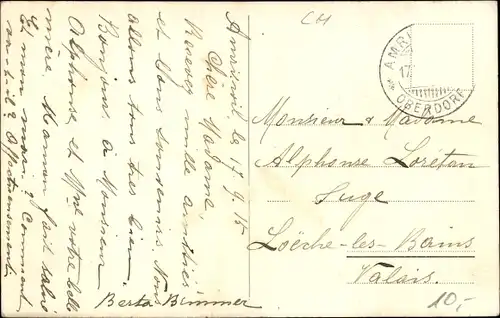 CH
AMRI
17.
OBERDORF
Amriswil, le 17. 9. 15
Chère Madame,
Recevez mille amitiés
et bons souvenirs. Nous
allons tous très bien.
Bonjour à Monsieur
Alphonse, et Mme votre belle
mère. Maman fait saluer
Et mon mon? Comment
va-t-il? Affectueusement.
Berta Bimmer
Monsieur & Madame
Alphonse Lorétan
Juge
Loèche-les-Bains
Valais.
10,-